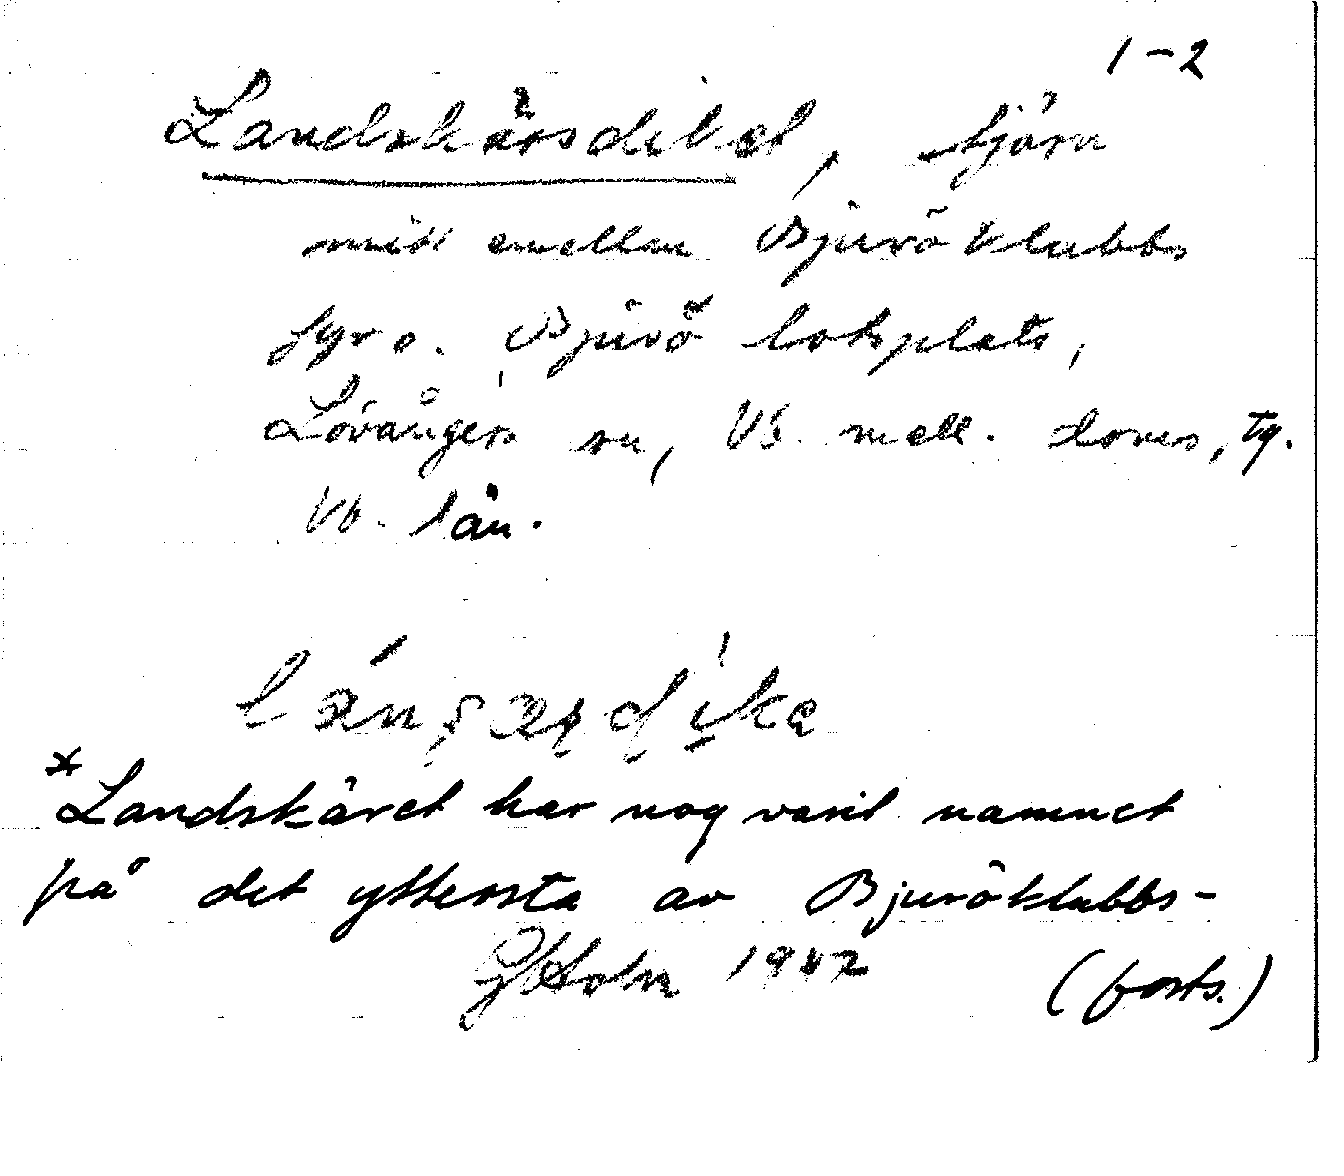 1-2
Landskärsdiket, tjärn
mitt emellan Bjuröklubbs
fyr o. Bjurö lotsplats,
Lövångers sn, Vb. mell. doms, tg.
Vb. län.
* Landskäret har nog varit namnet
på det yttersta av Bjuröklubbs-
GHolm 1947 (forts.)